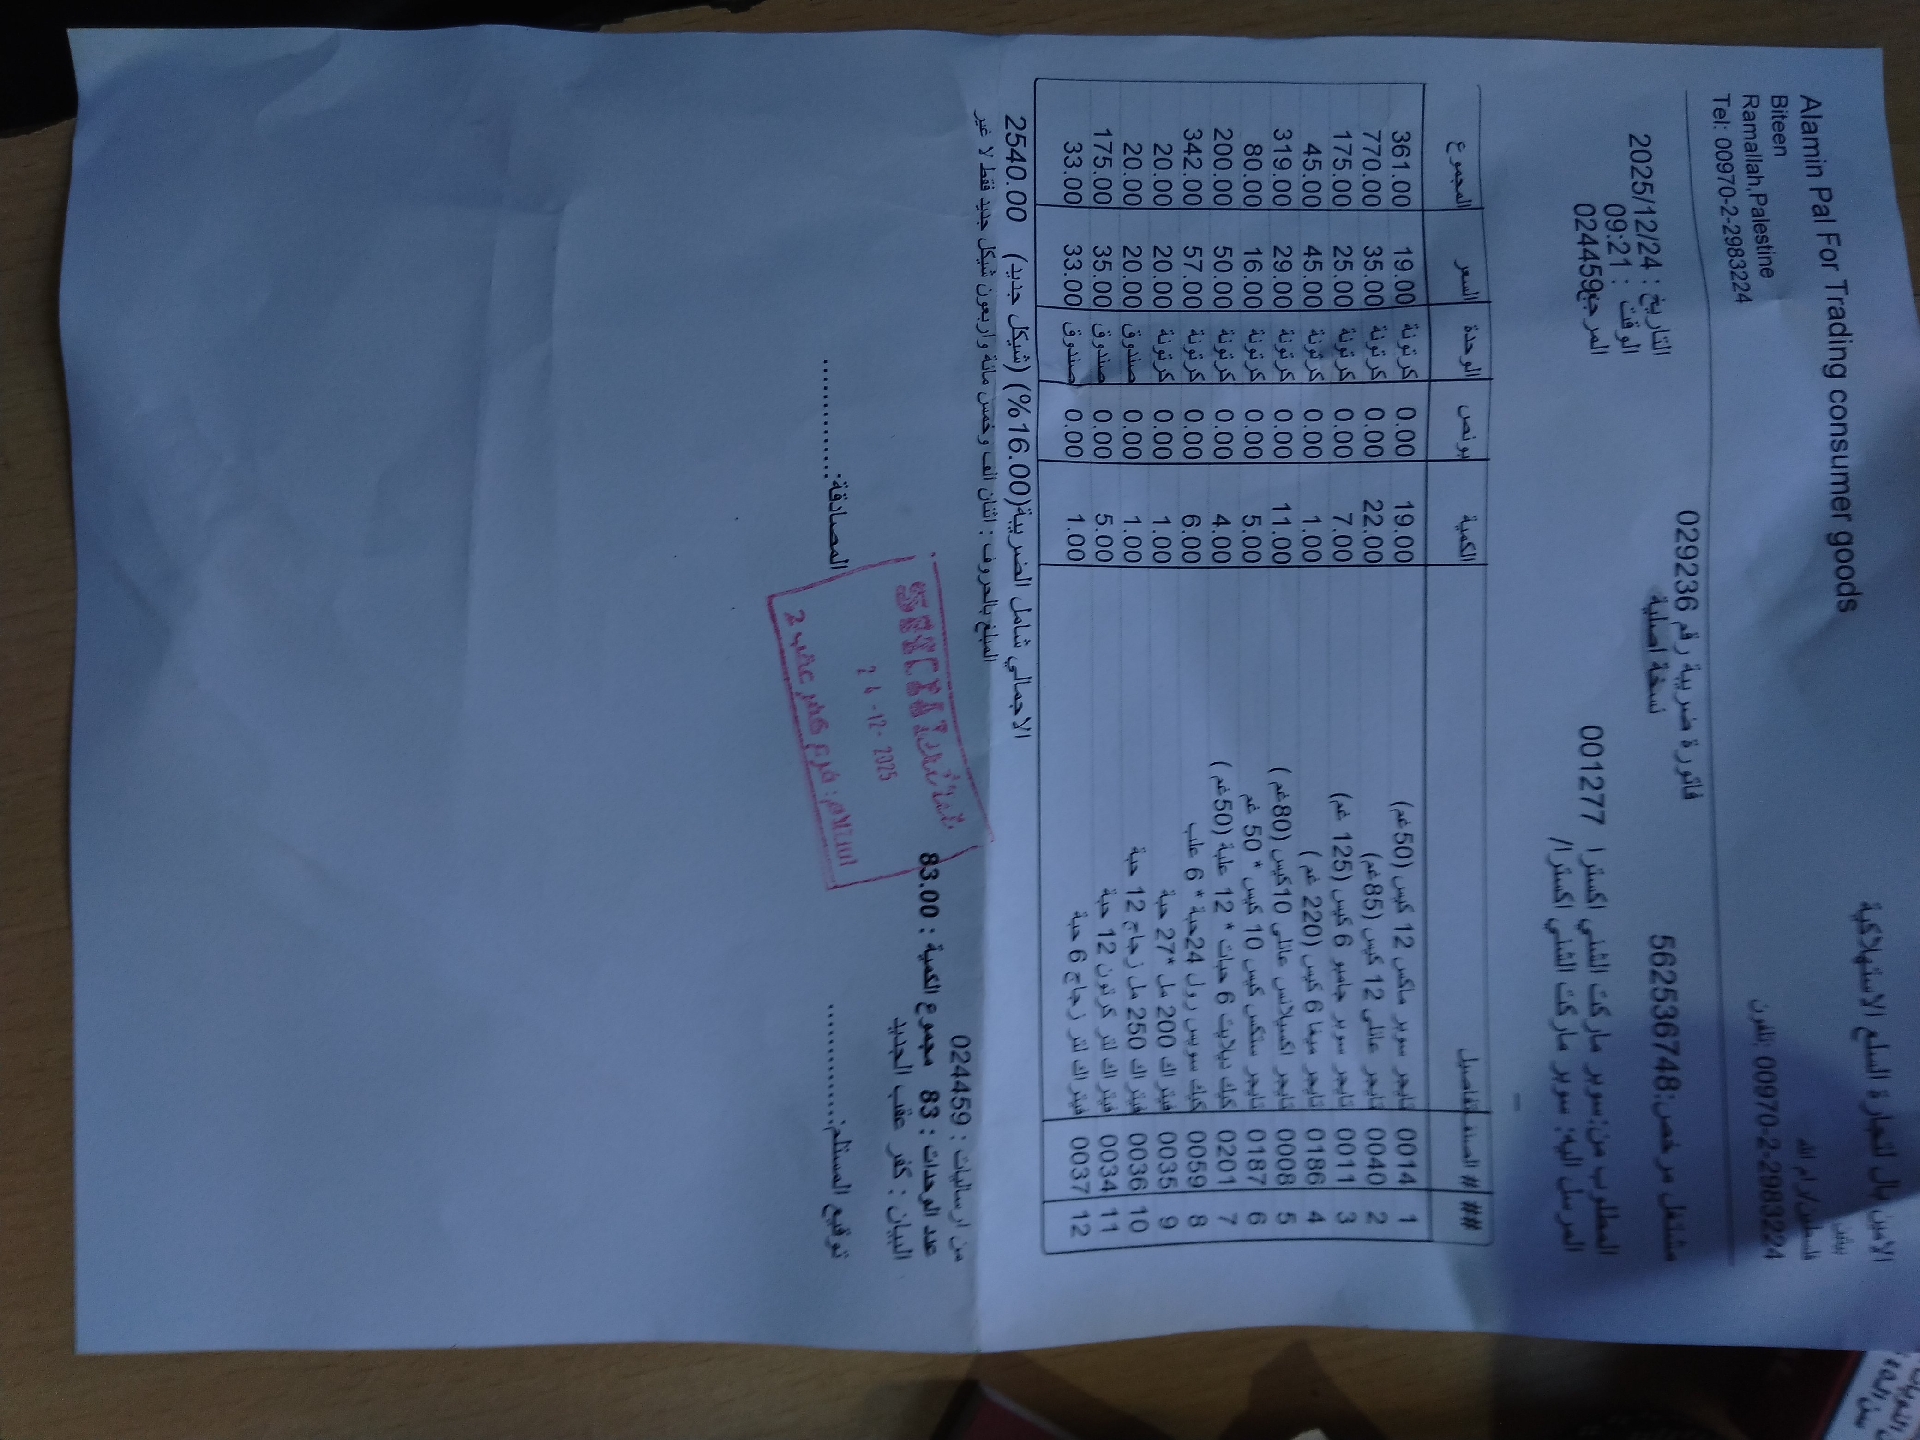 Alamin Pal For Trading consumer goods
الامين بال لتجارة السلع الاستهلاكية
Biteen
بيتين
Ramallah,Palestine
فلسطين/رام الله
Tel: 00970-2-2983224
00970-2-2983224
فاتورة ضريبة رقم 029236
نسخة اصلية
مشتغل مرخص:562536748
التاريخ : 2025/12/24
الوقت : 09:21
المرجع024459
المطلوب من:سوبر ماركت الشني اكسترا 001277
المرسل اليه: سوبر ماركت الشني اكسترا/
## # الصنف التفاصيل الكمية بونص الوحدة السعر المجموع
1 0014 تايجر سوبر ماكس 12 كيس (50غم) 19.00 0.00 كرتونة 19.00 361.00
2 0040 تايجر عائلي 12 كيس (85غم) 22.00 0.00 كرتونة 35.00 770.00
3 0011 تايجر سوبر جامبو 6 كيس (125 غم) 7.00 0.00 كرتونة 25.00 175.00
4 0186 تايجر ميغا 6 كيس (220 غم ) 1.00 0.00 كرتونة 45.00 45.00
5 0008 تايجر اكسبلانس عائلي 10كيس (80غم) 11.00 0.00 كرتونة 29.00 319.00
6 0187 تايجر ستكس كيس 10 كيس * 50 غم 5.00 0.00 كرتونة 16.00 80.00
7 0201 كيك ديلايت 6 حبات * 12 علبة (50غم ) 4.00 0.00 كرتونة 50.00 200.00
8 0059 كيك سويس رول 24حبة * 6 علب 6.00 0.00 كرتونة 57.00 342.00
9 0035 فيتراك 200 مل *27 حبة 1.00 0.00 كرتونة 20.00 20.00
10 0036 فيتراك 250 مل زجاج 12 حبة 1.00 0.00 صندوق 20.00 20.00
11 0034 فيتراك لتر كرتون 12 حبة 5.00 0.00 صندوق 35.00 175.00
12 0037 فيتراك لتر زجاج 6 حبة 1.00 0.00 صندوق 33.00 33.00
الاجمالي شامل الضريبة(16.00%) (شيكل جديد) 2540.00
المبلغ بالحروف : اثنان الف وخمس مائة واربعون شيكل جديد فقط لا غير
من ارساليات : 024459
عدد الوحدات : 83 مجموع الكمية : 83.00
البيان : كفر عقب الجديد
24 -12- 2025
استلام: فرع كفر عقب 2
توقيع المستلم:............
المصادقة:............